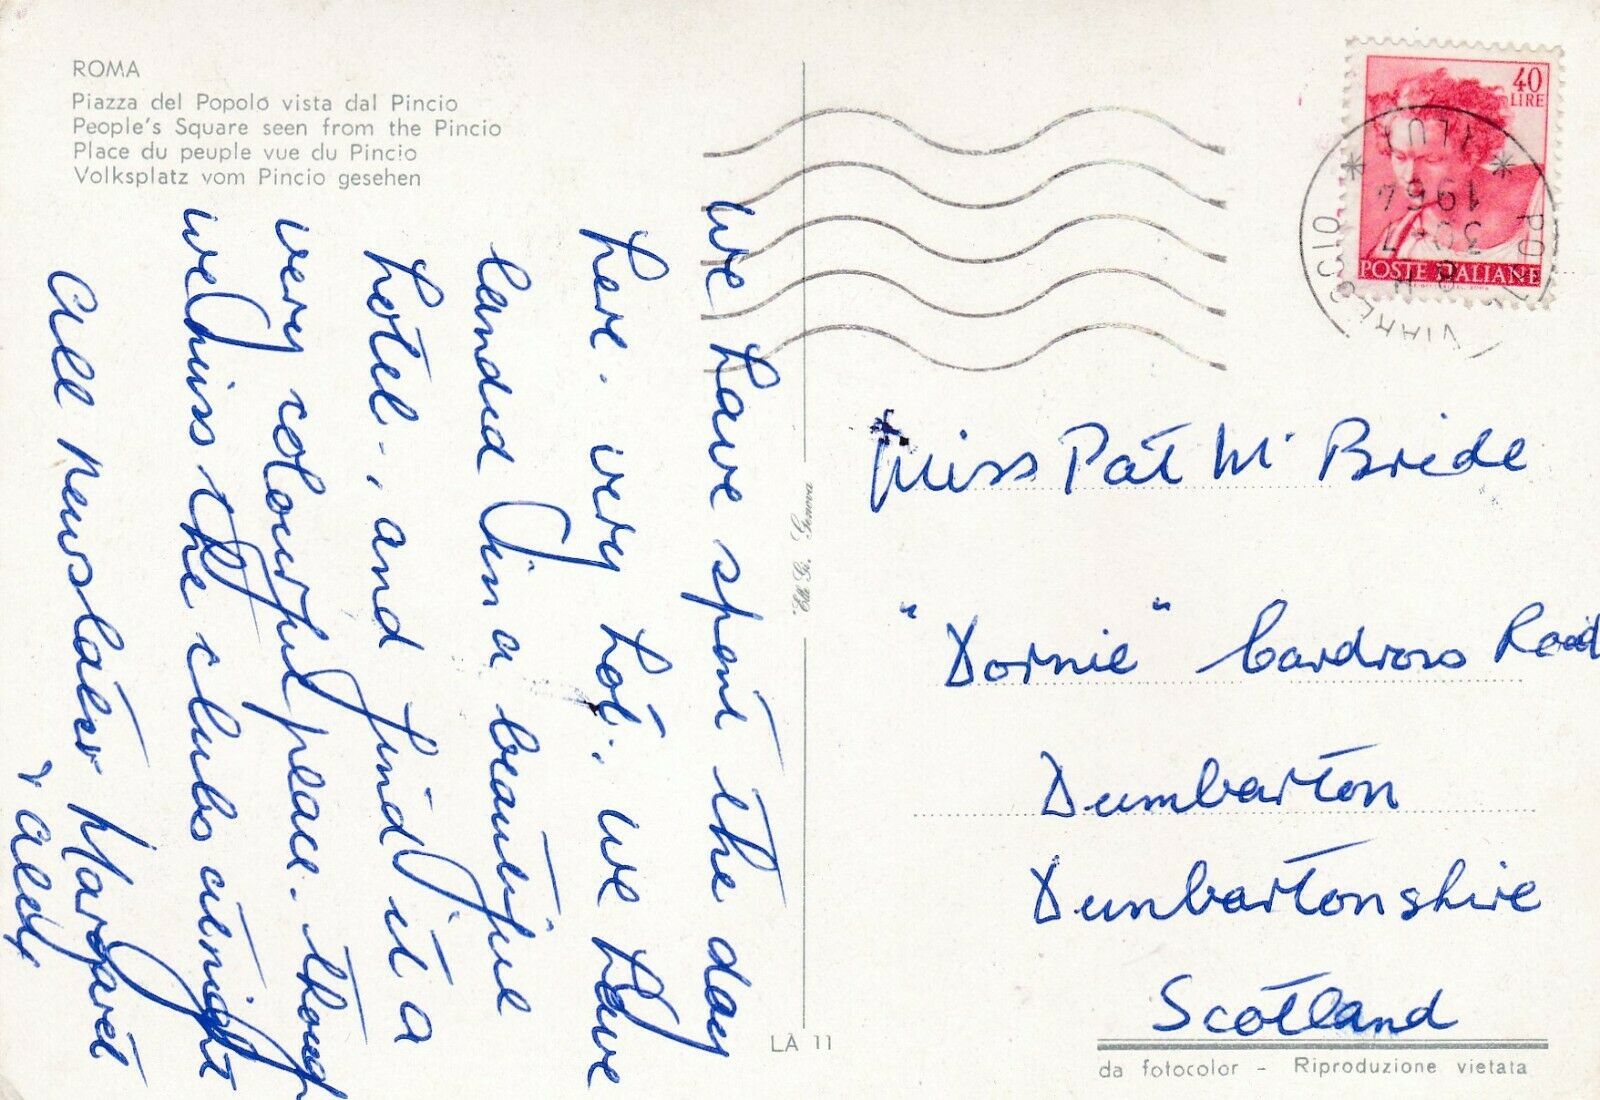 ROMA
Piazza del Popolo vista dal Pincio
People's Square seen from the Pincio
Place du peuple vue du Pincio
Volksplatz vom Pincio gesehen
we have spent the day
here. very hot. we have
landed in a beautiful
hotel, and find it a
very colourful place. though
we miss the clubs at night
all news later Margaret
& Alec,
40
LIRE
POSTE ITALIANE
VIAREGGIO
8 H
30-7
1964
Miss Pat Mc Bride
"Dornie" Cardross Road
Dumbarton
Dunbartonshire
Scotland
LA 11
da fotocolor - Riproduzione vietata